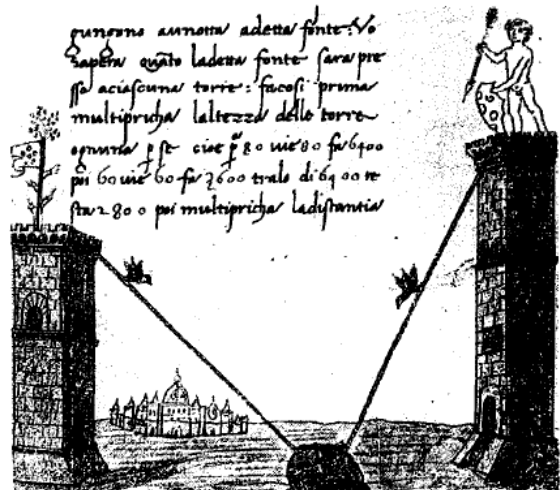 gungono aunotta adetta fonte: Vo
sapera quāto ladetta fonte sara pre
sso aciascuna torre: facosi prima
multipricha laltezza delle torre
ognuna p se cioe p 80 vie 80 fa 6400
poi 60 vie 60 fa 3600 tralo di 6400 re
sta 2800 poi multipricha ladistantia